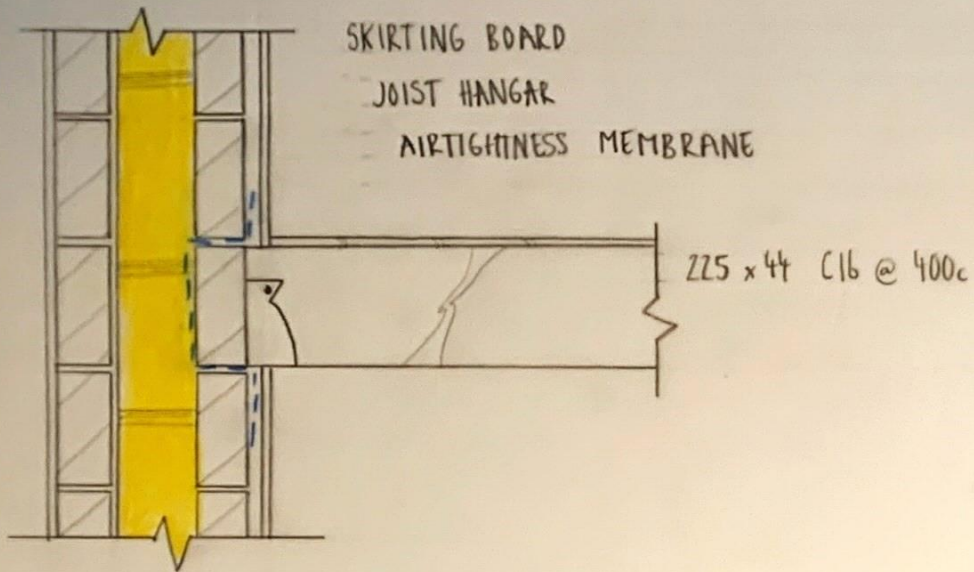 SKIRTING BOARD
JOIST HANGAR
AIRTIGHTNESS MEMBRANE
225 x 44 C16 @ 400c